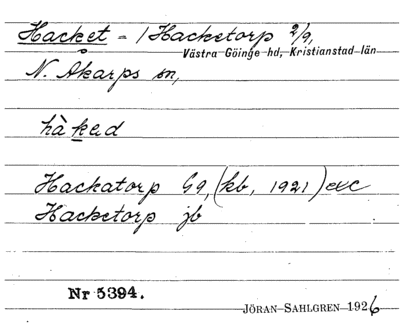 Hacket = / Hacketorp 2/9,
Västra Göinge hd, Kristianstad län
N. Åkarps sn,
hàked
Hackatorp G9, (kb, 1921) etc
Hacketorp jb
Nr 5394.
JÖRAN SAHLGREN 1926